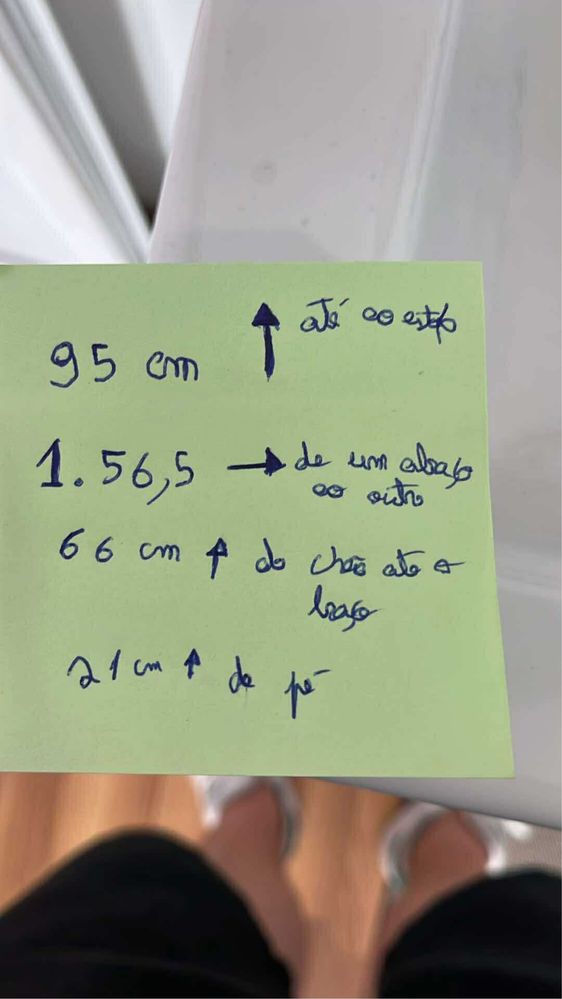 95 cm ↑ até ao estofo
1.56,5 → de um abraço
ao outro
66 cm ↑ do chão até o
braço
21 cm ↑ de pé